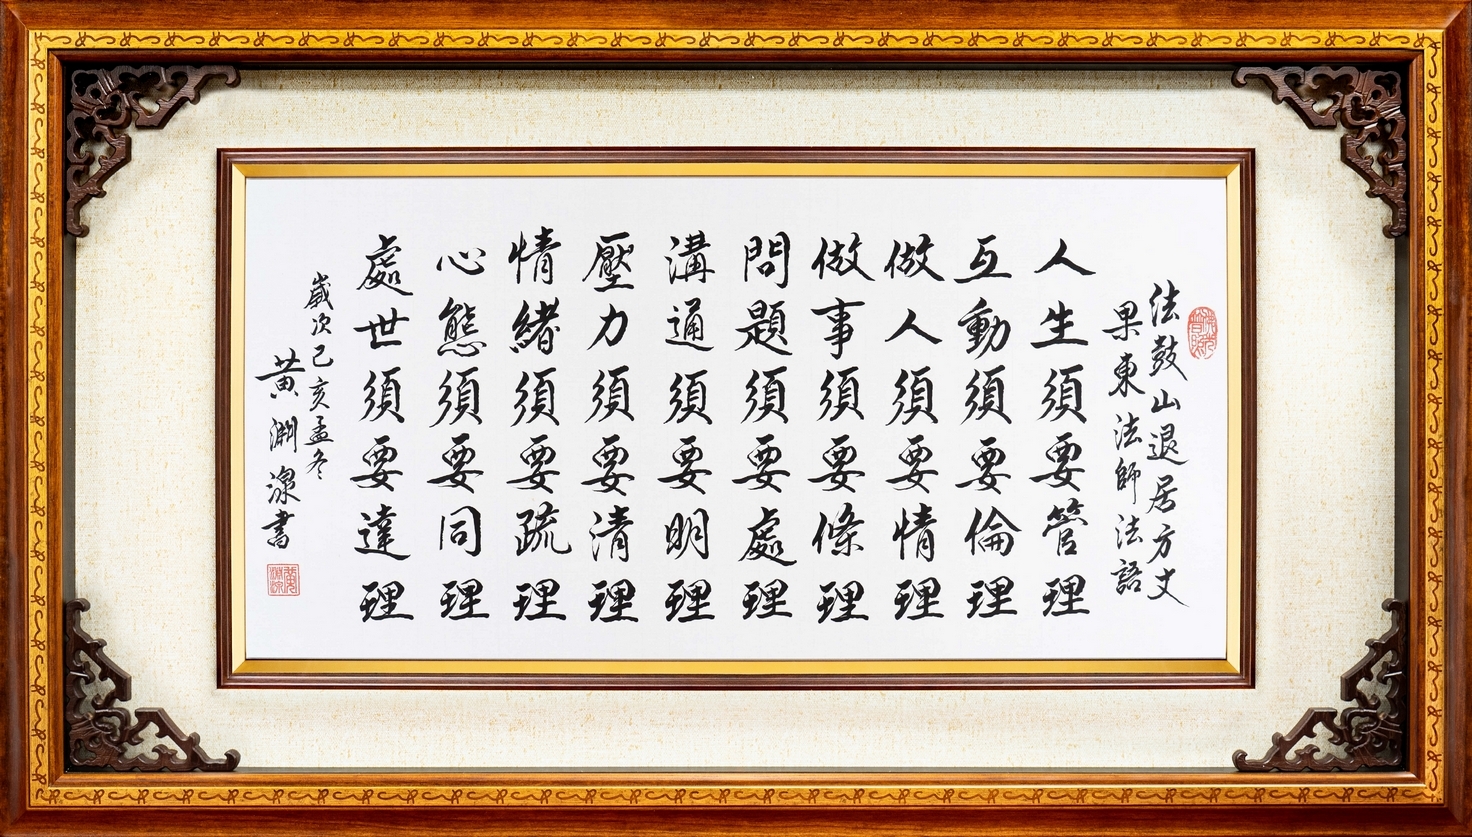 法鼓山退居方丈
果東法師法語
人生須要管理
互動須要倫理
做人須要情理
做事須要條理
問題須要處理
溝通須要明理
壓力須要清理
情緒須要疏理
心態須要同理
處世須要達理
歲次己亥孟冬
黃淵深書